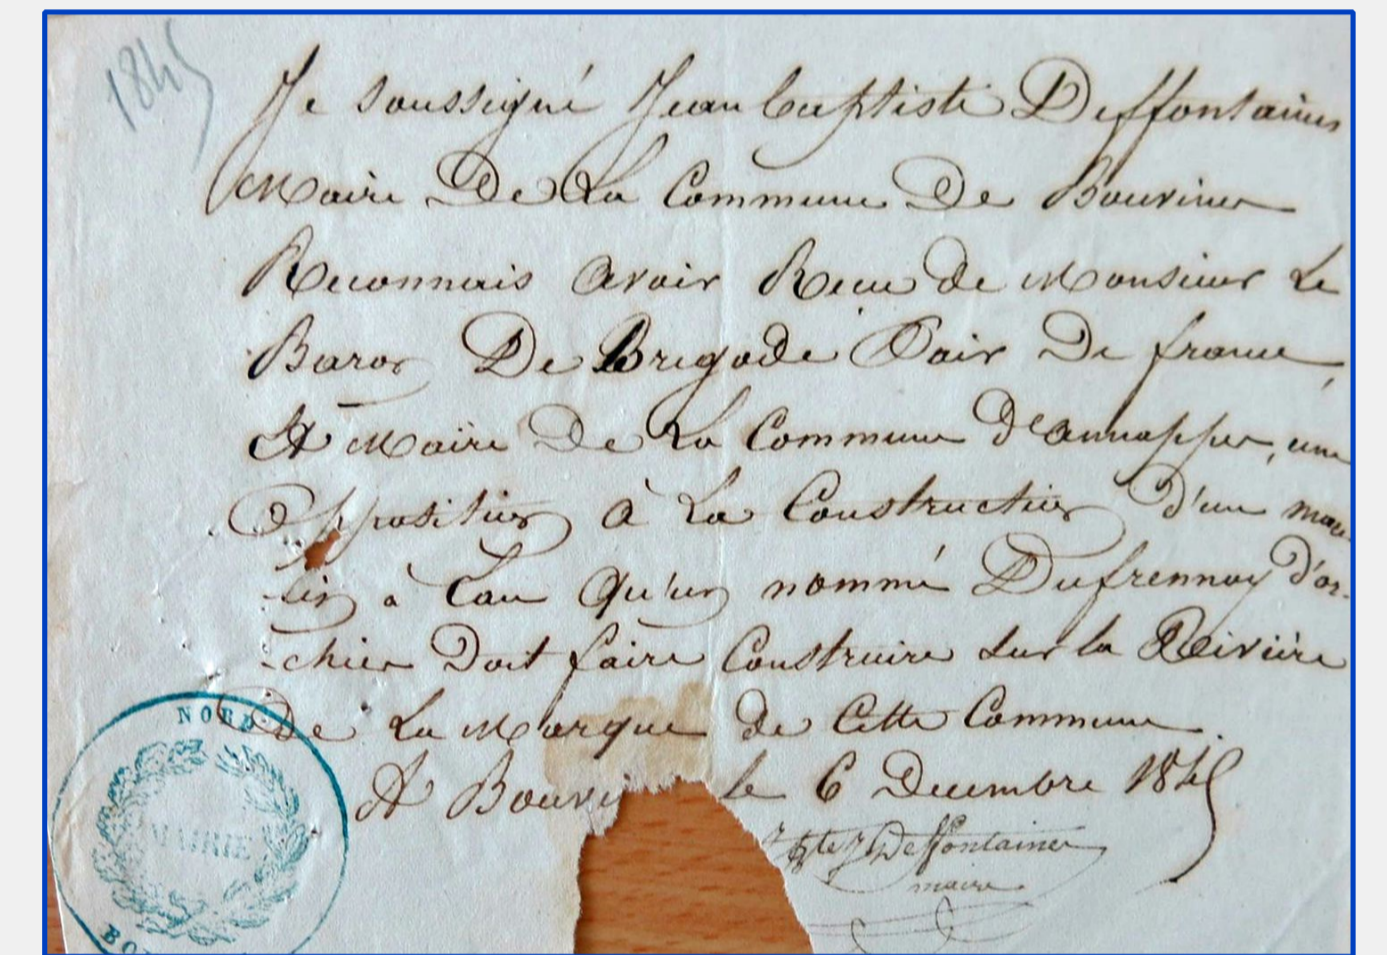 1845
Je soussigné Jean baptiste Deffontaines
Maire De La Commune De Bouvines
Reconnais avoir Recu de Monsieur Le
Baron De Brigode Pair De france,
Et Maire De La Commune D'annappes, une
Opposition à La Construction d'un mou-
lin à Eau Qu'un nommé Dufrennoy d'or-
chies Doit faire Construire sur la Rivière
De La Marque de Cette Commune.
A Bouvi le 6 Decembre 1845
Deffontaines
maire
NORD
MAIRIE
BO